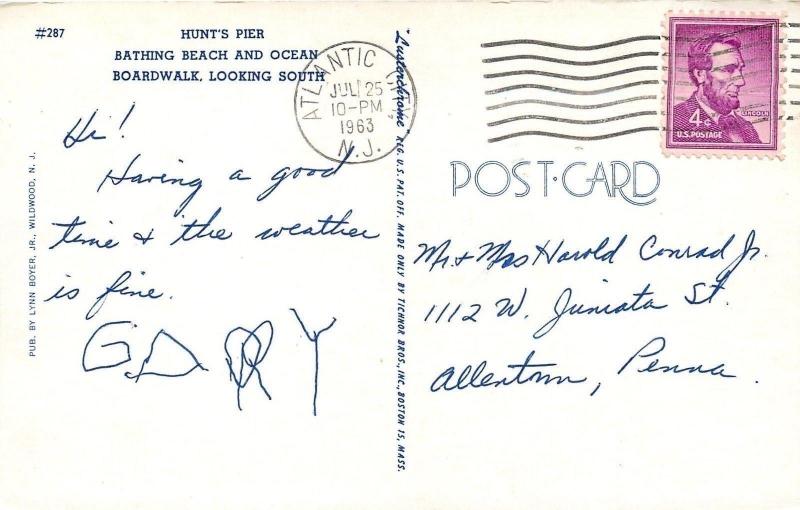 #287
HUNT'S PIER
BATHING BEACH AND OCEAN
BOARDWALK, LOOKING SOUTH
Hi!
Having a good
time & the weather
is fine.
GARY
PUB. BY LYNN BOYER, JR., WILDWOOD, N. J.
"Lusterchrome" REG. U. S. PAT. OFF. MADE ONLY BY TICHNOR BROS., INC., BOSTON 15, MASS.
ATLANTIC CITY,
JUL 25
10-PM
1963
N.J.
LINCOLN
4¢
U.S. POSTAGE
POST-CARD
Mr. & Mrs Harold Conrad Jr.
1112 W. Juniata St.
Allentown, Penna.